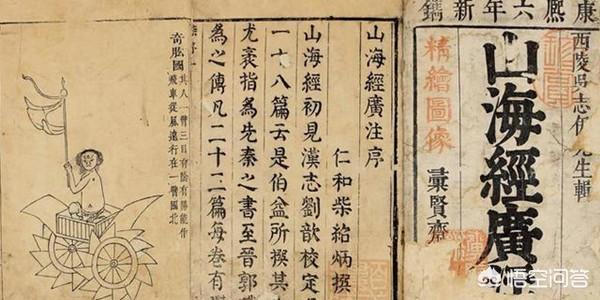 康熙六年新鐫
西陵吳志伊先生輯
山海經廣
精繪圖像
彙賢齋
山海經廣注序
仁和柴紹炳撰
山海經初見漢志劉歆校定
一十八篇云是伯益所撰其
尤袤指為先秦之書至晉郭
為之傳凡二十二篇每卷有
奇肱國其人一臂三目有陰有陽能作
飛車從風遠行在一臂國北
悟空问答